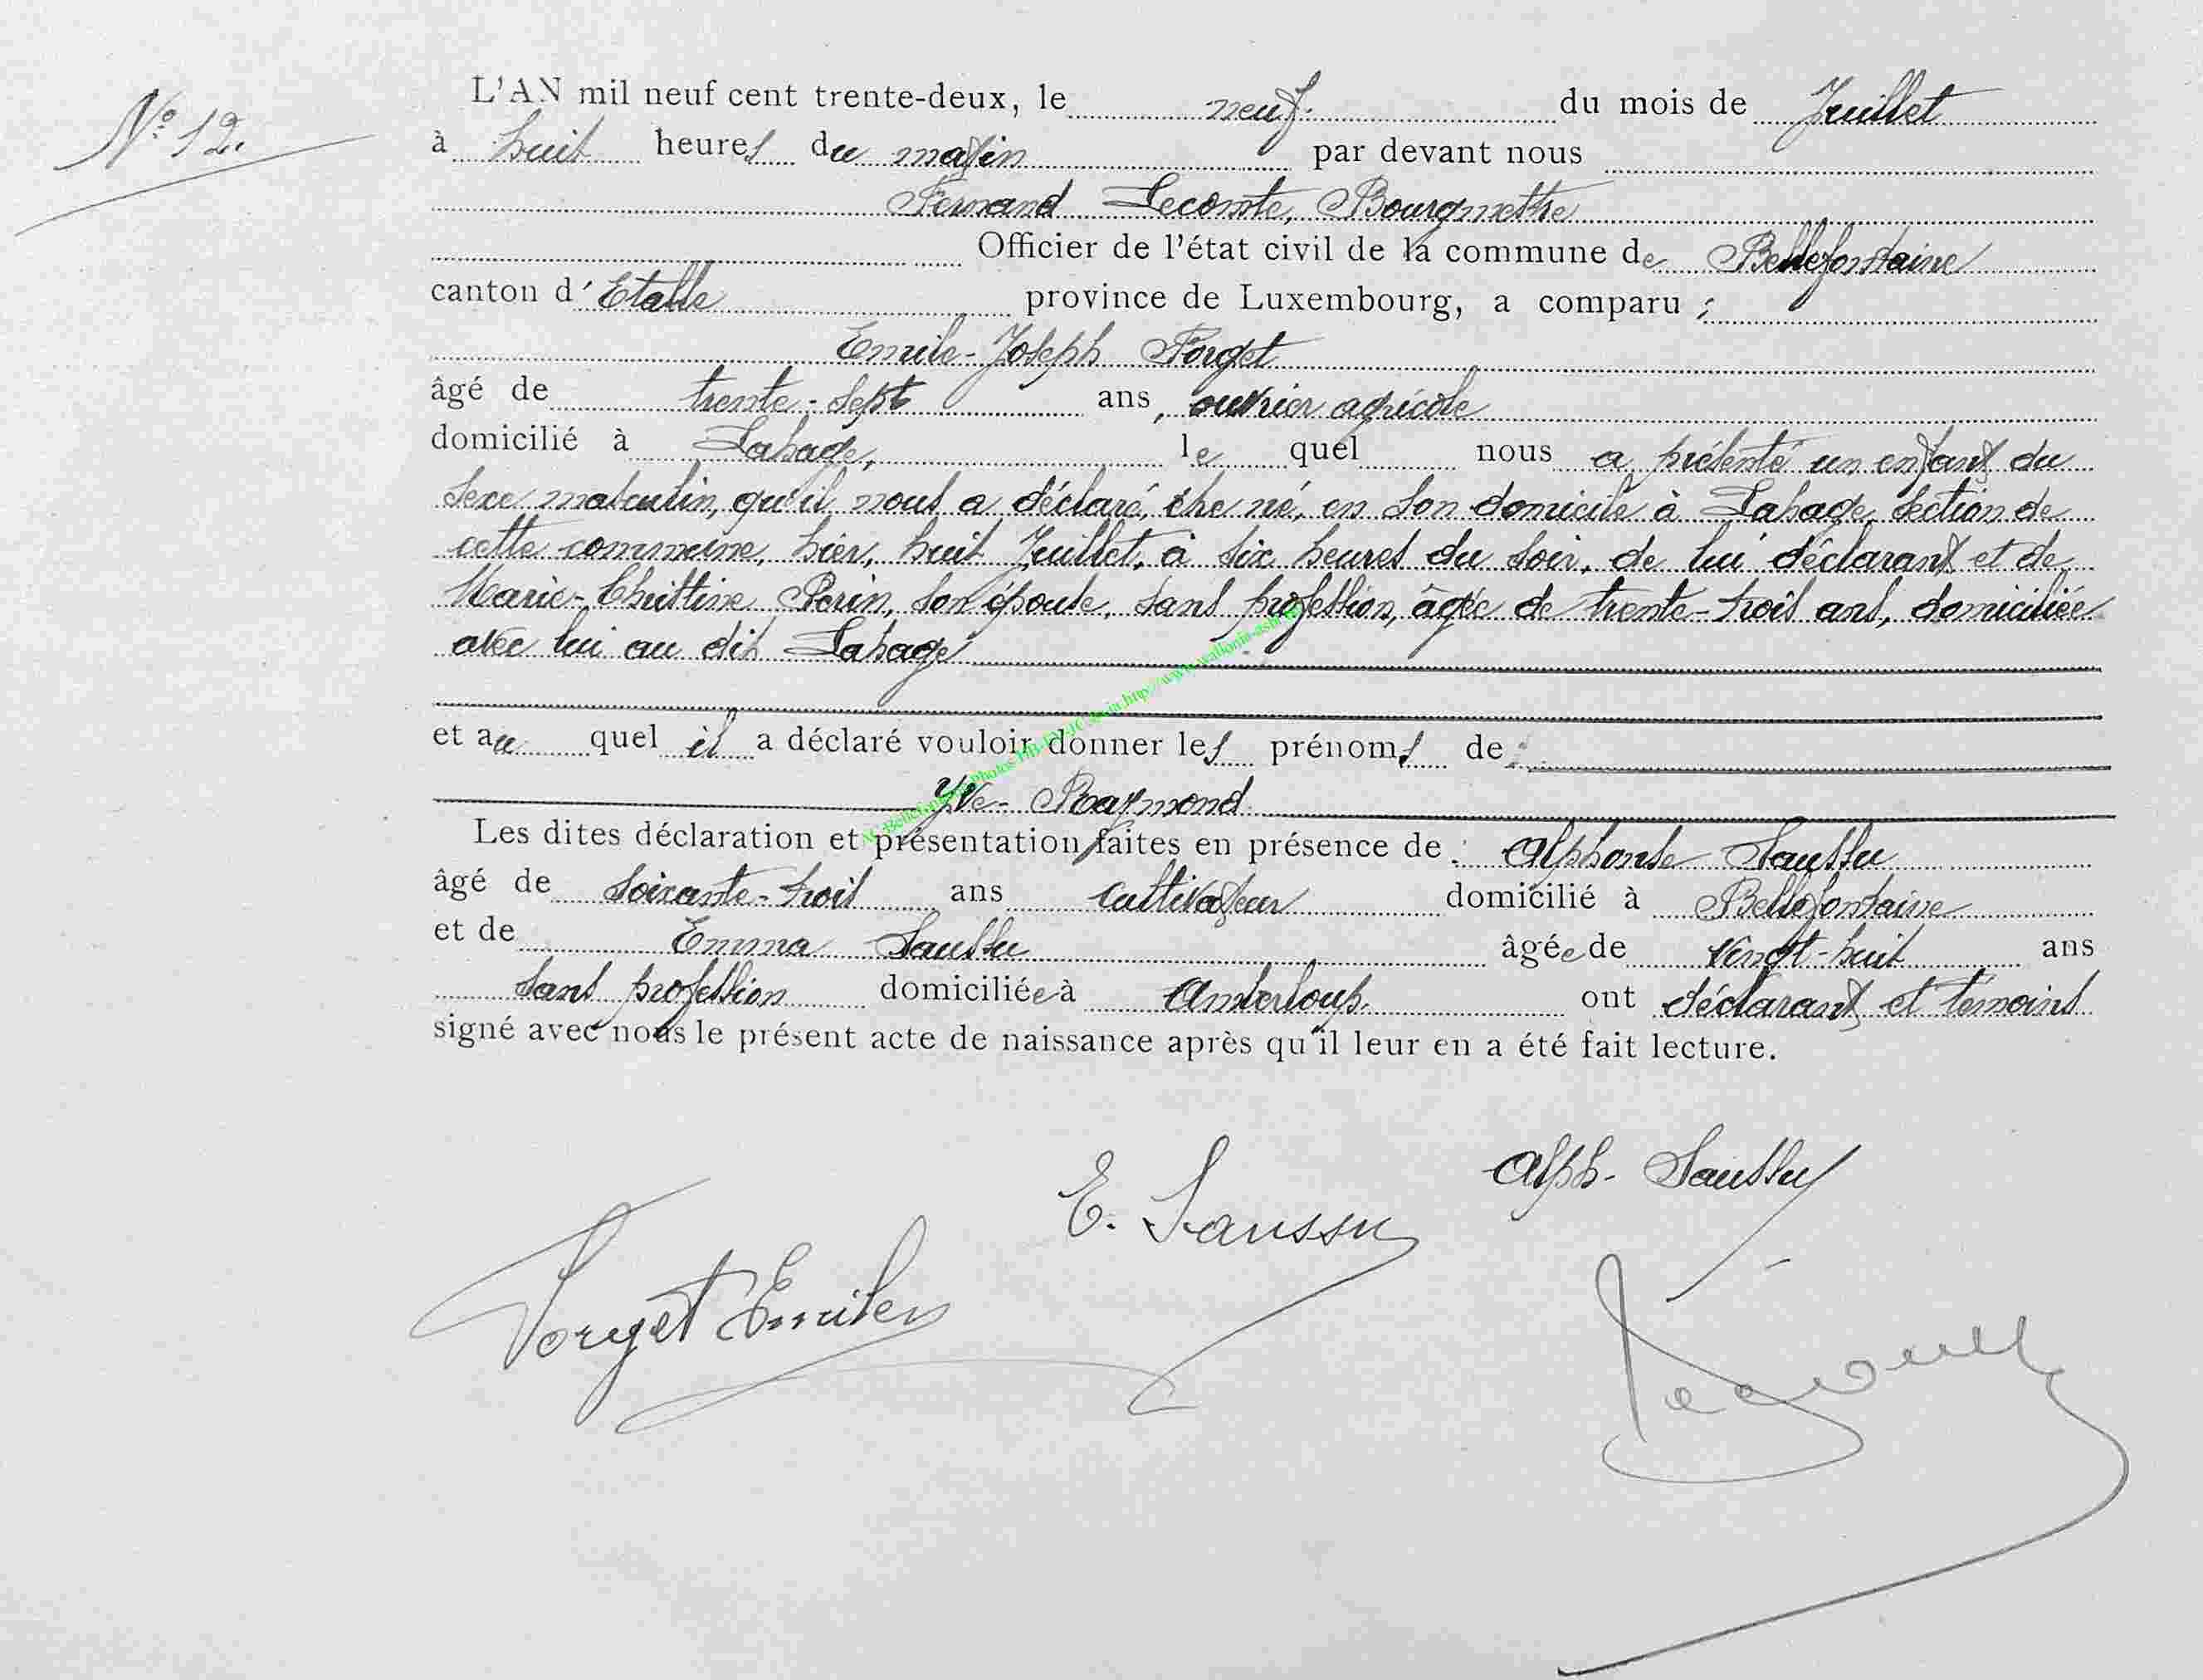 N° 12.
L'AN mil neuf cent trente-deux, le neuf du mois de Juillet
à huit heures du matin par devant nous
Fernand Lecomte, Bourgmestre
Officier de l'état civil de la commune de Bellefontaine
canton d'Etalle province de Luxembourg, a comparu :
Emile-Joseph Forget
âgé de trente-sept ans, ouvrier agricole
domicilié à Lahage, le quel nous a présenté un enfant du
sexe masculin, qu'il nous a déclaré, être né, en son domicile à Lahage, section de
cette commune, hier, huit Juillet, à six heures du soir, de lui déclarant et de
Marie-Christine Perin, son épouse, sans profession, âgée de trente-trois ans, domiciliée
avec lui au dit Lahage
et au quel il a déclaré vouloir donner les prénoms de
Yve-Raymond
Les dites déclaration et présentation faites en présence de : Alphonse Saussu
âgé de soixante-trois ans cultivateur domicilié à Bellefontaine
et de Emma Saussu âgée de vingt-huit ans
sans profession domiciliée à Amberloup ont déclarant et témoins
signé avec nous le présent acte de naissance après qu'il leur en a été fait lecture.
Alph. Saussu
E. Saussu
Forget Emile